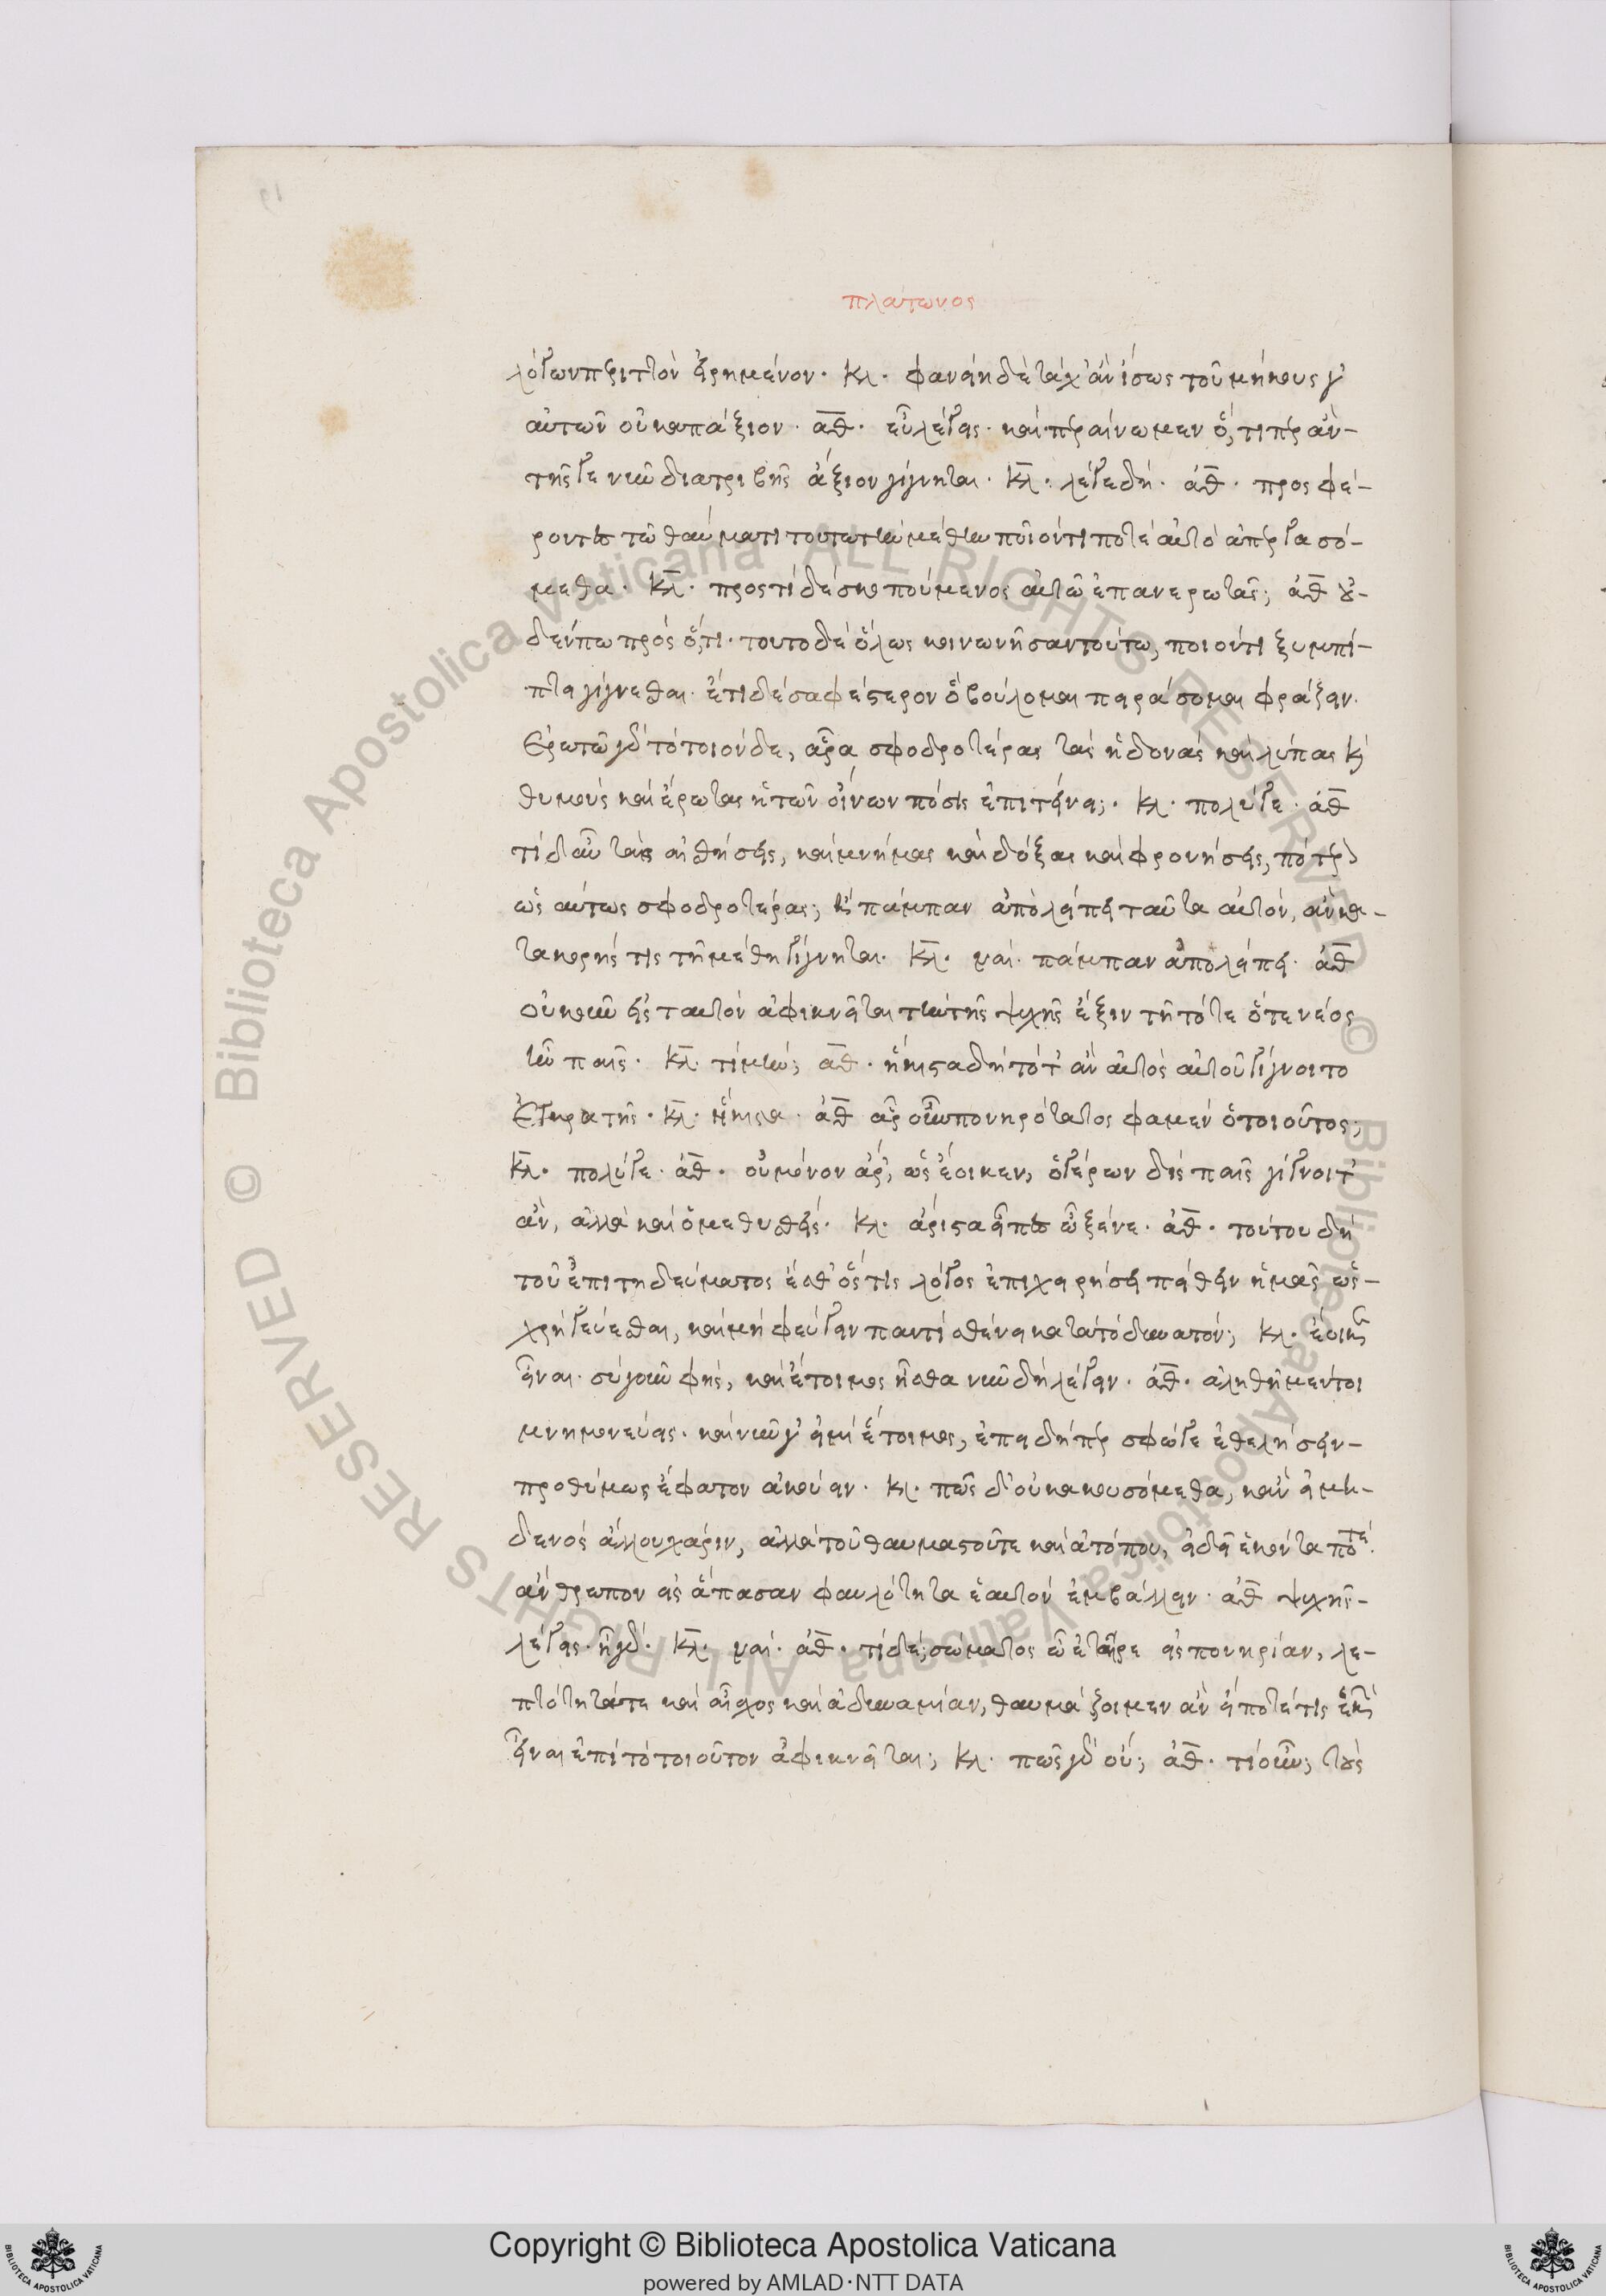 πλάτωνος
λόγων περιττὸν εἰρημένον· κλ· φανείη δὲ τάχ' ἂν ἴσως τοῦ μήκους γ'
αὐτῶν οὐκ ἀπάξιον· ἀθ· εὖ λέγεις· καὶ περαίνωμεν ὅ,τι περ ἂν-
τῆς γε νῦν διατριβῆς ἄξιον γίγνηται· κλ· λέγε δή· ἀθ· προσφέ-
ροντες τῷ θαύματι τούτῳ τὴν μέθην ποῖόν τί ποτε αὐτὸ ἀπεργασό-
μεθα· κλ· πρὸς τί δὲ σκοπούμενος αὐτῷ ἐπανερωτᾷς; ἀθ οὐ-
δέν πω πρὸς ὅ,τι· τοῦτο δὲ ὅλως κοινωνῆσαν τούτῳ, ποῖόν τι ξυμπί-
πτει γίγνεσθαι· ἔτι δὲ σαφέστερον ὃ βούλομαι πειράσομαι φράζειν·
Ἐρωτῶ γὰρ τὸ τοιόνδε, ἆρα σφοδροτέρας τὰς ἡδονὰς καὶ λύπας καὶ
θυμοὺς καὶ ἔρωτας ἡ τῶν οἴνων πόσις ἐπιτείνει; κλ· πολύ γε· ἀθ
τί δ' αὖ τὰς αἰσθήσεις, καὶ μνήμας καὶ δόξας καὶ φρονήσεις, πότερον
ὡσαύτως σφοδροτέρας; ἢ πάμπαν ἀπολείπει ταῦτα αὐτόν, ἂν κα-
τακορής τις τῇ μέθῃ γίγνηται· κλ· ναί· πάμπαν ἀπολείπει· ἀθ
οὐκοῦν εἰς ταυτὸν ἀφικνεῖται τὴν τῆς ψυχῆς ἕξιν τῇ τότε ὅτε νέος
ἦν παῖς· κλ· τί μήν; ἀθ· ἥκιστα δὴ τότ' ἂν αὐτὸς αὑτοῦ γίγνοιτο
ἐγκρατής· κλ· ἥκιστα· ἀθ ἆρ' οὖν πονηρότατος φαμὲν ὁ τοιοῦτος;
κλ· πολύ γε· ἀθ· οὐ μόνον ἄρ', ὡς ἔοικεν, ὁ γέρων δὶς παῖς γίγνοιτ'
ἄν, ἀλλὰ καὶ ὁ μεθυσθείς· κλ· ἄριστα εἶπες ὦ ξένε· ἀθ· τούτου δὴ
τοῦ ἐπιτηδεύματος ἔσθ' ὅστις λόγος ἐπιχειρήσει πείθειν ἡμᾶς ὡς-
χρὴ γεύεσθαι, καὶ μὴ φεύγειν παντὶ σθένει κατὰ τὸ δυνατόν; κλ· ἔοικεν
εἶναι· σὺ γοῦν φῄς, καὶ ἕτοιμος ἦσθα νῦν δὴ λέγειν· ἀθ· ἀληθῆ μέντοι
μνημονεύεις· καὶ νῦν γ' εἰμὶ ἕτοιμος, ἐπειδήπερ σφώ γε ἐθελήσειν-
προθύμως ἔφατον ἀκούειν· κλ· πῶς δ' οὐκ ἀκουσόμεθα, κἂν εἰ μη-
δενὸς ἄλλου χάριν, ἀλλὰ τοῦ θαυμαστοῦ τε καὶ ἀτόπου, εἰ δεῖ ἑκόντα ποτέ
ἄνθρωπον εἰς ἅπασαν φαυλότητα ἑαυτὸν ἐμβάλλειν· ἀθ ψυχῆς-
λέγεις· ἦ γάρ· κλ· ναί· ἀθ· τί δέ; σώματος ὦ ἑταῖρε εἰς πονηρίαν, λε-
πτότητά τε καὶ αἶσχος καὶ ἀδυναμίαν, θαυμάζοιμεν ἂν εἴ ποτέ τις ἑκὼν
εἶναι ἐπὶ τὸ τοιοῦτον ἀφικνεῖται; κλ· πῶς γὰρ οὔ; ἀθ· τί οὖν; τοὺς
Copyright © Biblioteca Apostolica Vaticana
powered by AMLAD·NTT DATA
© Biblioteca Apostolica Vaticana ALL RIGHTS RESERVED
© Biblioteca Apostolica Vaticana ALL RIGHTS RESERVED